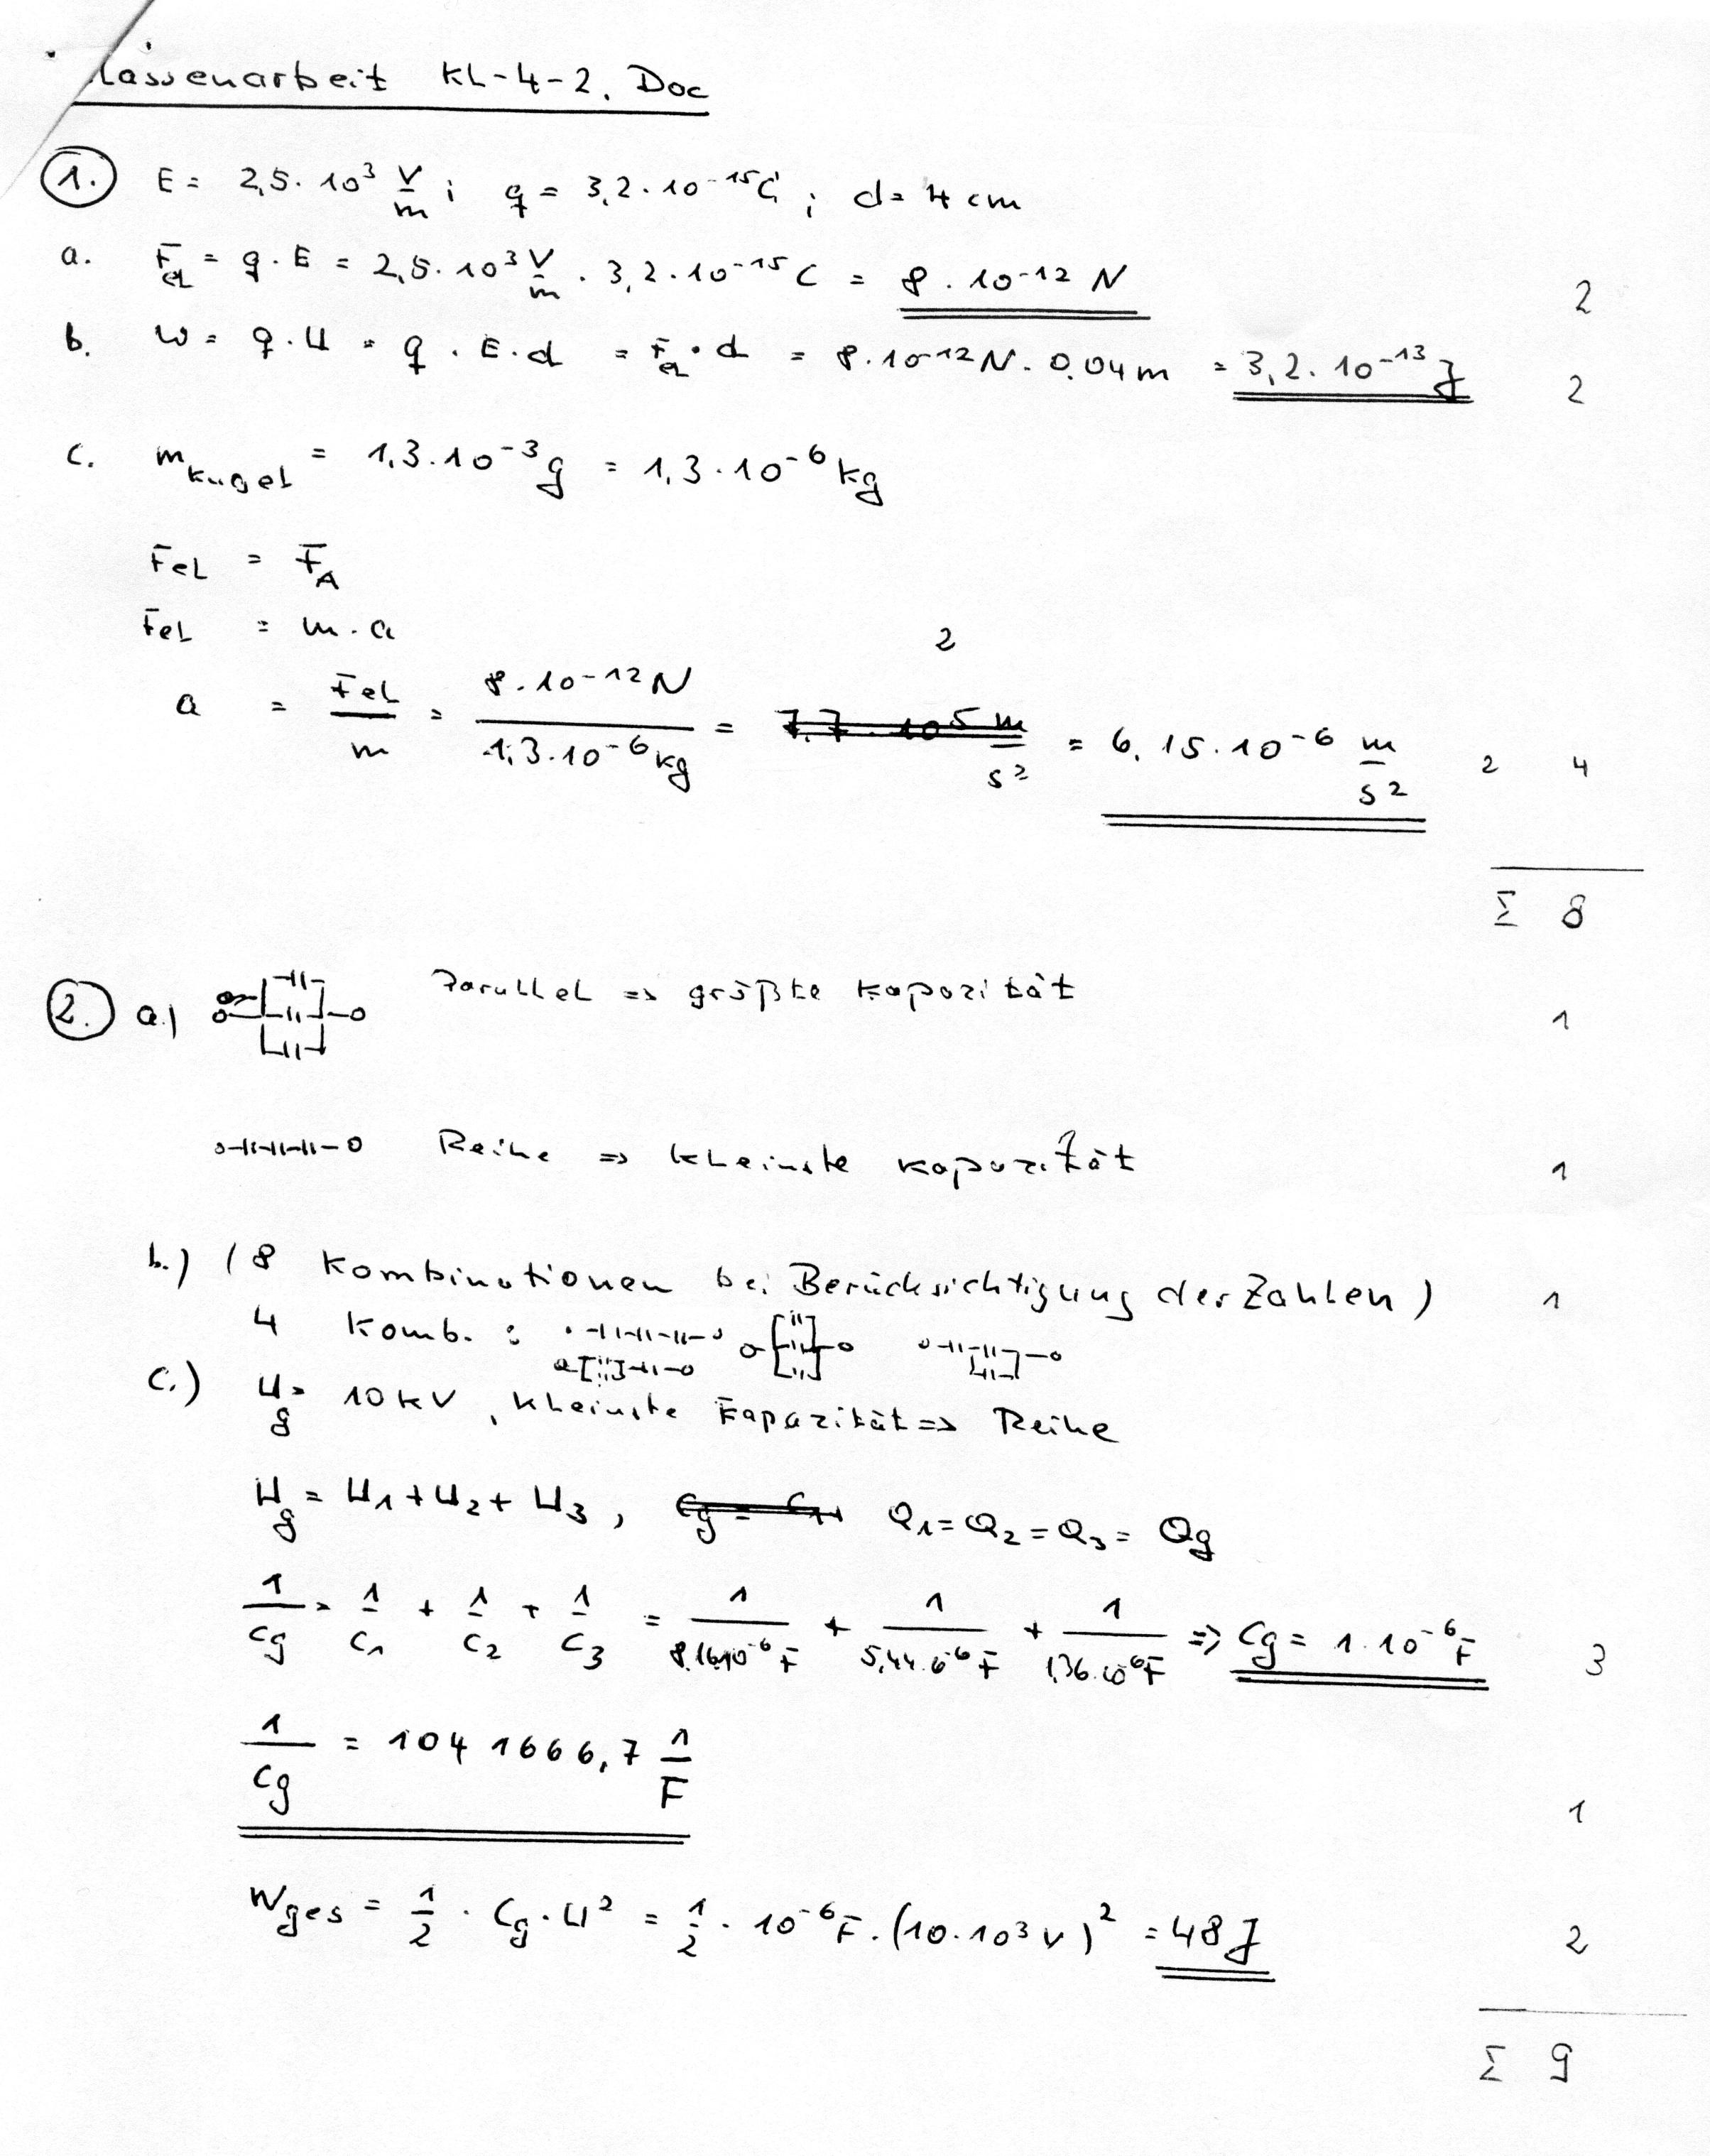 lassenarbeit KL-4-2. Doc
1. E = 2,5 · 10³ V/m ; q = 3,2 · 10⁻¹⁵ C ; d = 4 cm
a. Fel = q · E = 2,5 · 10³ V/m · 3,2 · 10⁻¹⁵ C = 8 · 10⁻¹² N 2
b. W = q · U = q · E · d = Fel · d = 8 · 10⁻¹² N · 0,04 m = 3,2 · 10⁻¹³ J 2
c. m Kugel = 1,3 · 10⁻³ g = 1,3 · 10⁻⁶ kg
Fel = FA
Fel = m · a 2
a = Fel/m = 8 · 10⁻¹² N / 1,3 · 10⁻⁶ kg = 7,7 · 10⁵ m/s² = 6,15 · 10⁻⁶ m/s² 2 4
Σ 8
2. a.) Parallel => größte Kapazität 1
Reihe => kleinste Kapazität 1
b.) (8 Kombinationen bei Berücksichtigung der Zahlen) 1
4 Komb. :
c.) Ug = 10 kV, kleinste Kapazität => Reihe
Ug = U1 + U2 + U3 , Cg = C1 Q1 = Q2 = Q3 = Qg
1/Cg = 1/C1 + 1/C2 + 1/C3 = 1/8,16·10⁻⁶ F + 1/5,44·10⁻⁶ F + 1/1,36·10⁻⁶ F => Cg = 1 · 10⁻⁶ F 3
1/Cg = 1041666,7 1/F 1
Wges = 1/2 · Cg · U² = 1/2 · 10⁻⁶ F · (10 · 10³ V)² = 48 J 2
Σ 9